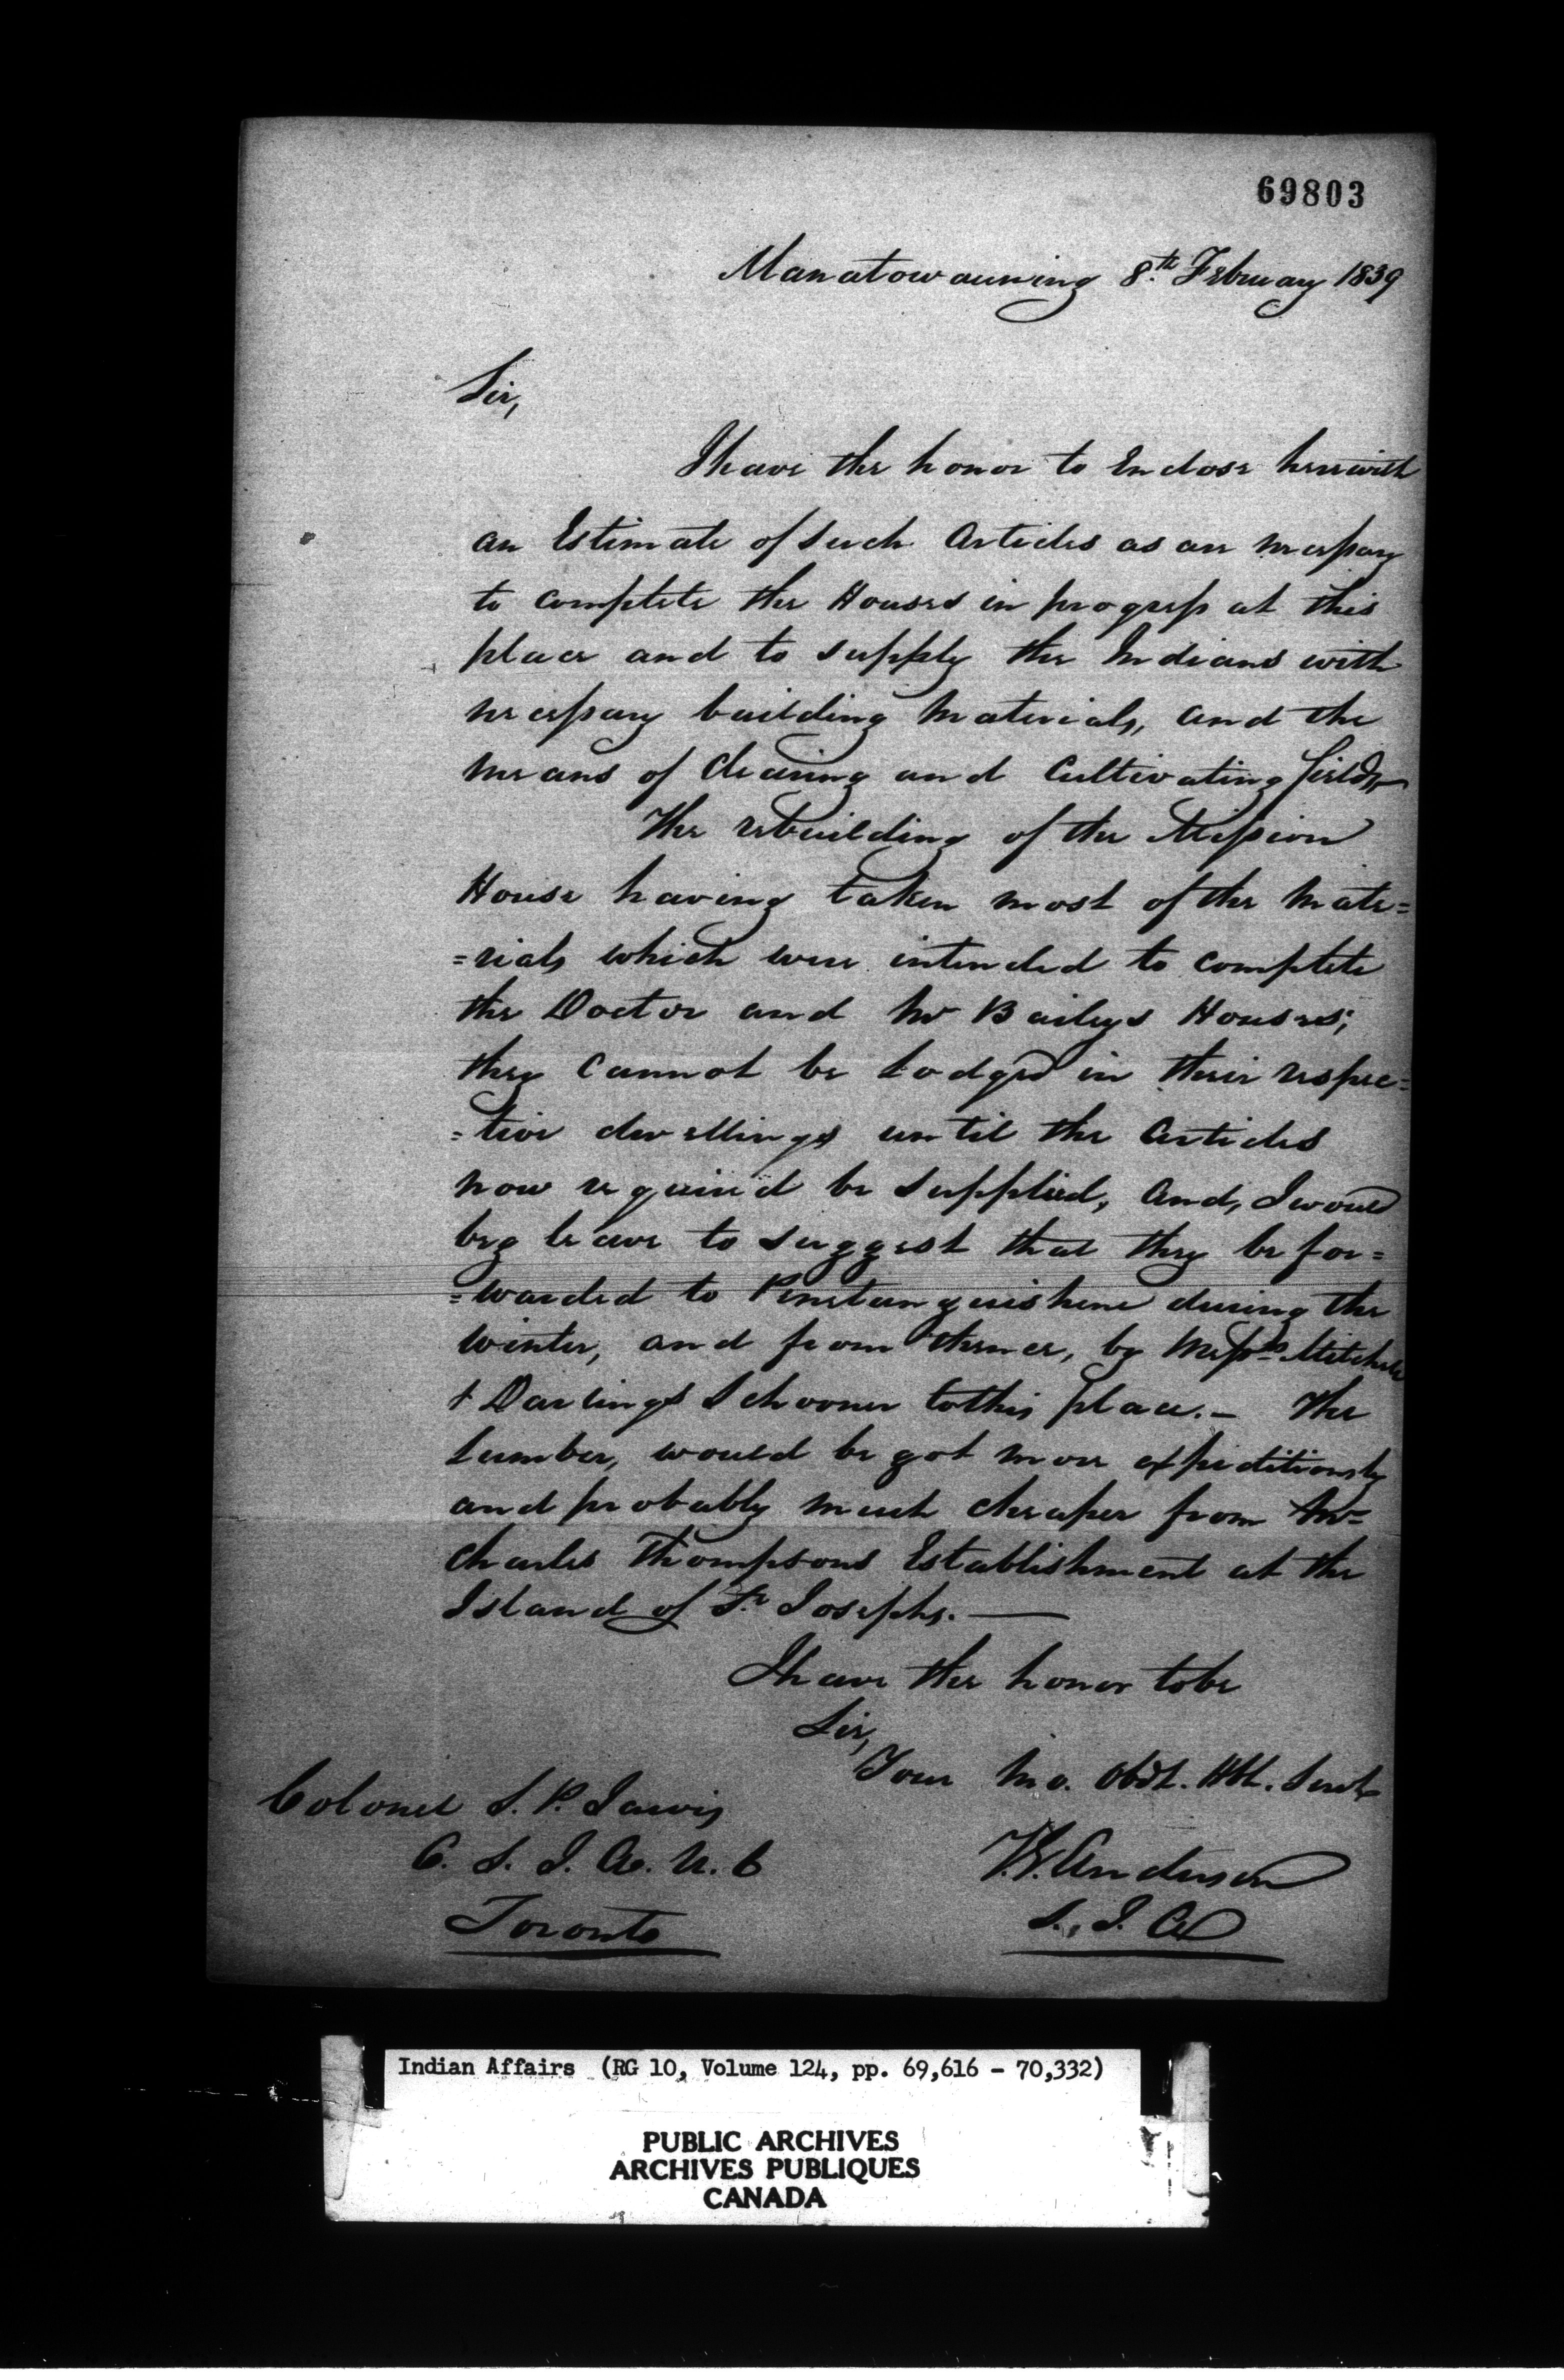 69803
Manatowauning 8th February 1839
Sir,
I have the honor to Enclose herewith
an Estimate of such Articles as are necessary
to complete the Houses in progress at this
place and to supply the Indians with
necessary building Materials, and the
means of clearing and Cultivating fields,
The rebuilding of the Mission
House having taken most of the mate=
=rials which were intended to complete
the Doctor and Mr Baileys Houses;
they cannot be Lodged in their respec=
=tive dwellings until the Articles
now required be supplied, And, I would
beg leave to suggest that they be for=
=warded to Penetanguishene during the
Winter, and from thence, by Messrs Mitchell
& Darlings Schooner to this place. — The
Lumber, would be got more expeditiously
and probably much cheaper from Mr
Charles Thompsons Establishment at the
Island of St Josephs. —
I have the honor to be
Sir,
Your Mo. Obdt. Hbl. Servt
Colonel S. P. Jarvis
C. S. I. A. U. C
Toronto
T.G. Anderson
S. I. A
Indian Affairs (RG 10, Volume 124, pp. 69,616 - 70,332)
PUBLIC ARCHIVES
ARCHIVES PUBLIQUES
CANADA